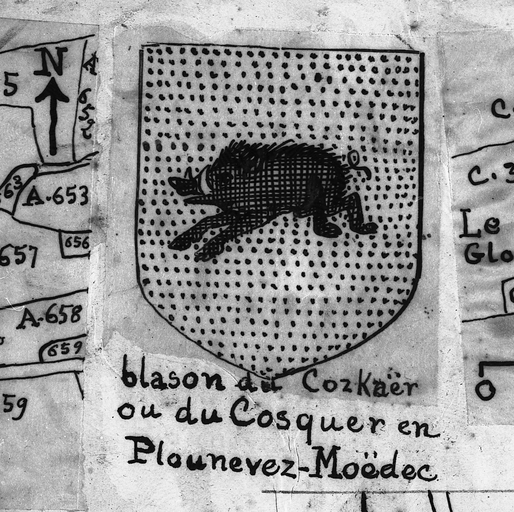 N
5
A-653
656
657
A-658
659
59
C.
C. 3
Le
Glo
0
blason du Cozkaër
ou du Cosquer en
Plounevez-Moëdec